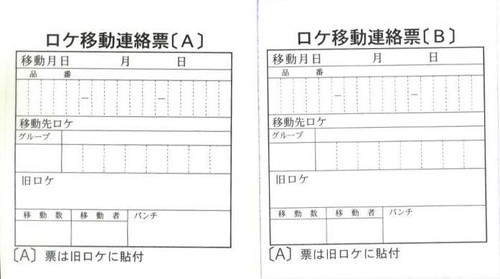 ロケ移動連絡票〔A〕
移動月日　月　日
品　番
－　－
移動先ロケ
グループ
旧ロケ
移動数　移動者　パンチ
〔A〕票は旧ロケに貼付
ロケ移動連絡票〔B〕
移動月日　月　日
品　番
－　－
移動先ロケ
グループ
旧ロケ
移動数　移動者　パンチ
〔A〕票は旧ロケに貼付